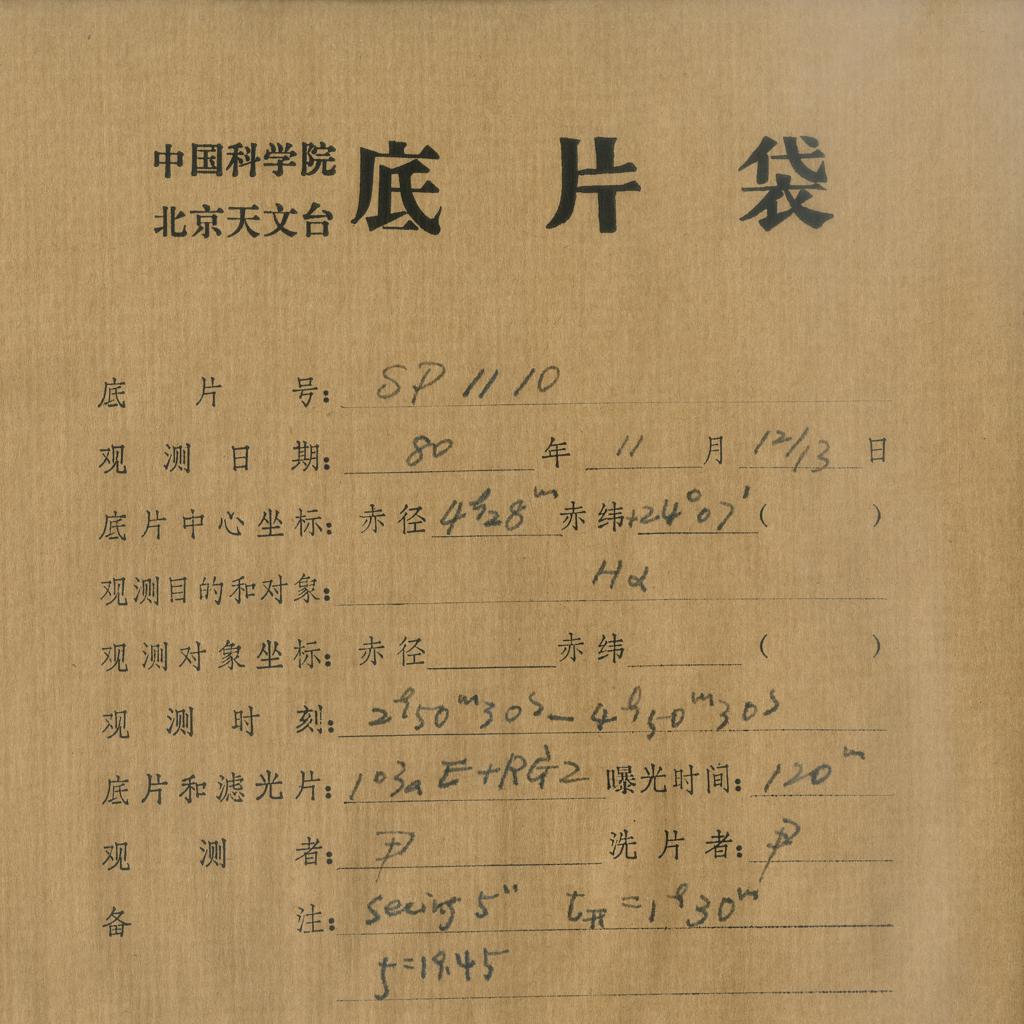 中国科学院
北京天文台 底片袋
底片号: SP 1110
观测日期: 80 年 11 月 12/13 日
底片中心坐标: 赤径 4h28m 赤纬 +24°07′ ( )
观测目的和对象: Hα
观测对象坐标: 赤径 赤纬 ( )
观测时刻: 2h50m30s — 4h50m30s
底片和滤光片: 103aE+RG2 曝光时间: 120m
观测者: 尹 洗片者: 尹
备注: seeing 5" t开=1h30m
=19.45